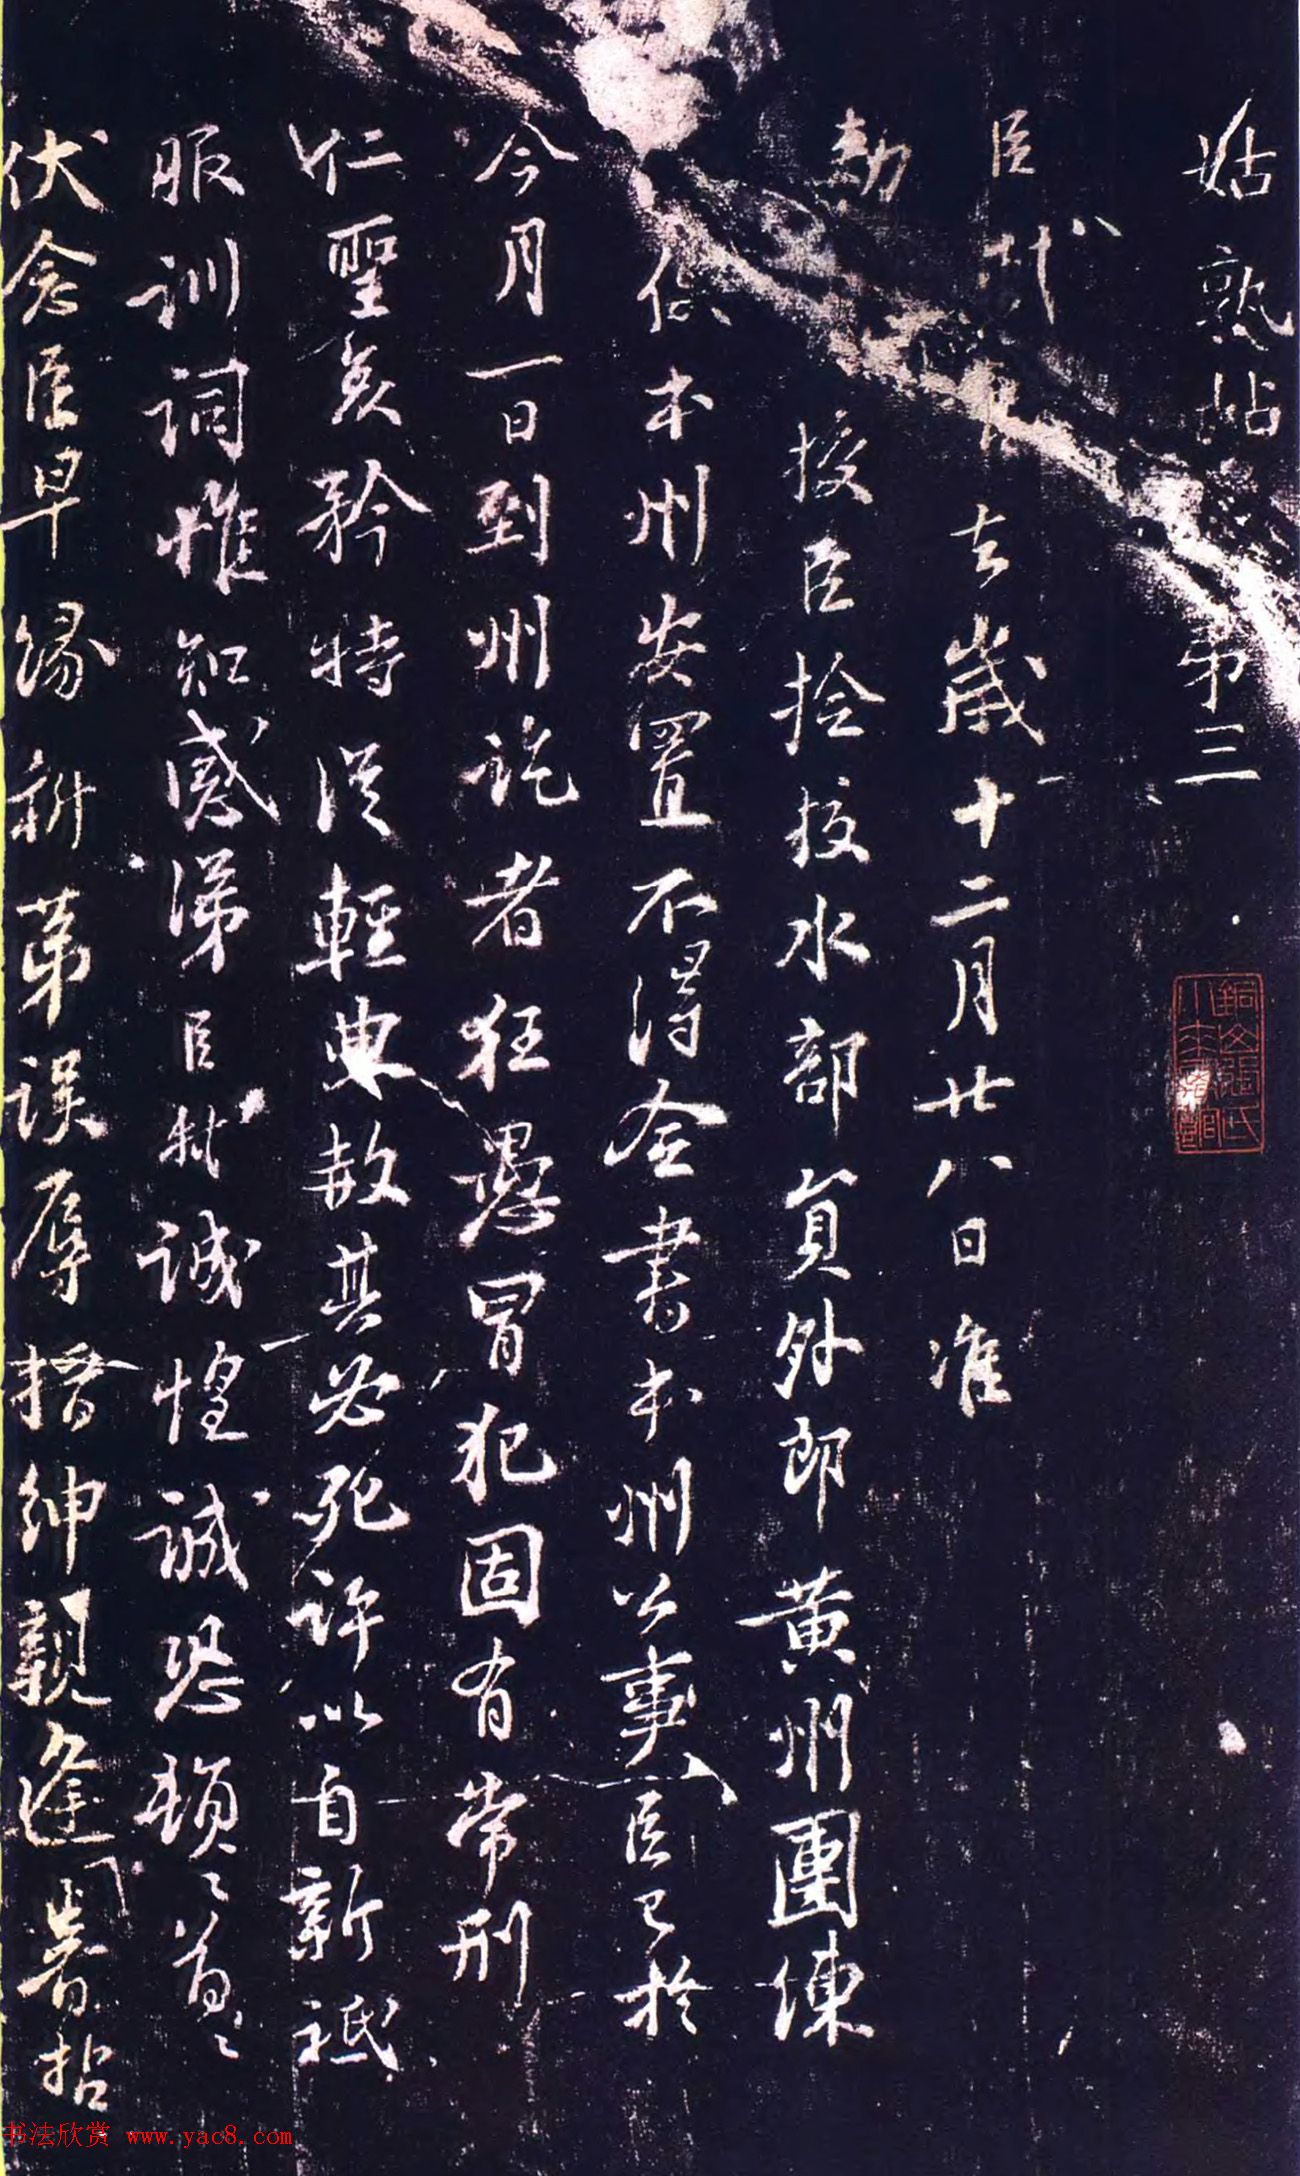 姑熟帖 第三
臣軾言去歲十二月廿八日准
敕 授臣撿挍水部員外郎黃州團練
使本州安置不得僉書本州公事臣已於
今月一日到州訖者狂愚冒犯固有常刑
仁聖哀矜特從輕典赦其必死許以自新祗
服訓詞惟知感涕臣軾誠惶誠恐頓〻首〻
伏念臣早緣科第誤辱搢紳親逢睿哲
銅山張氏
小來禽館
书法欣赏 www.yac8.com